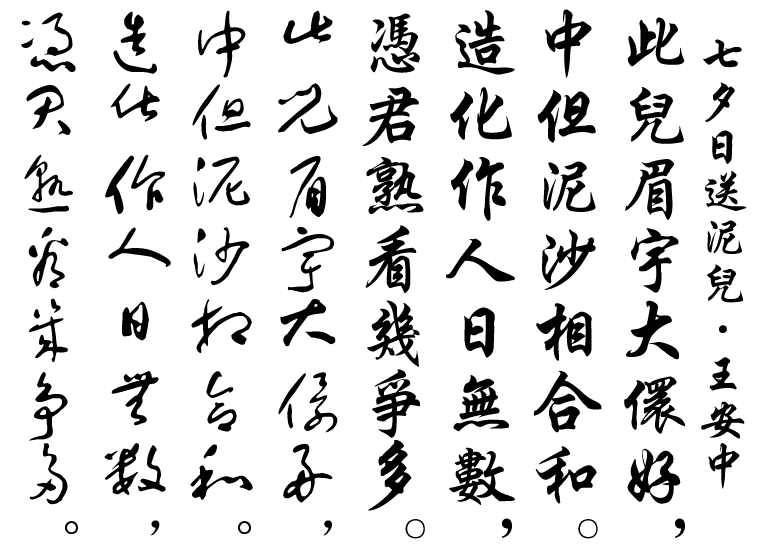 七夕日送泥兒·王安中
此兒眉宇大儇好,
中但泥沙相合和。
造化作人日無數,
憑君熟看幾爭多。
此兒眉宇大儇好,
中但泥沙相合和。
造化作人日無數,
憑君熟看幾爭多。